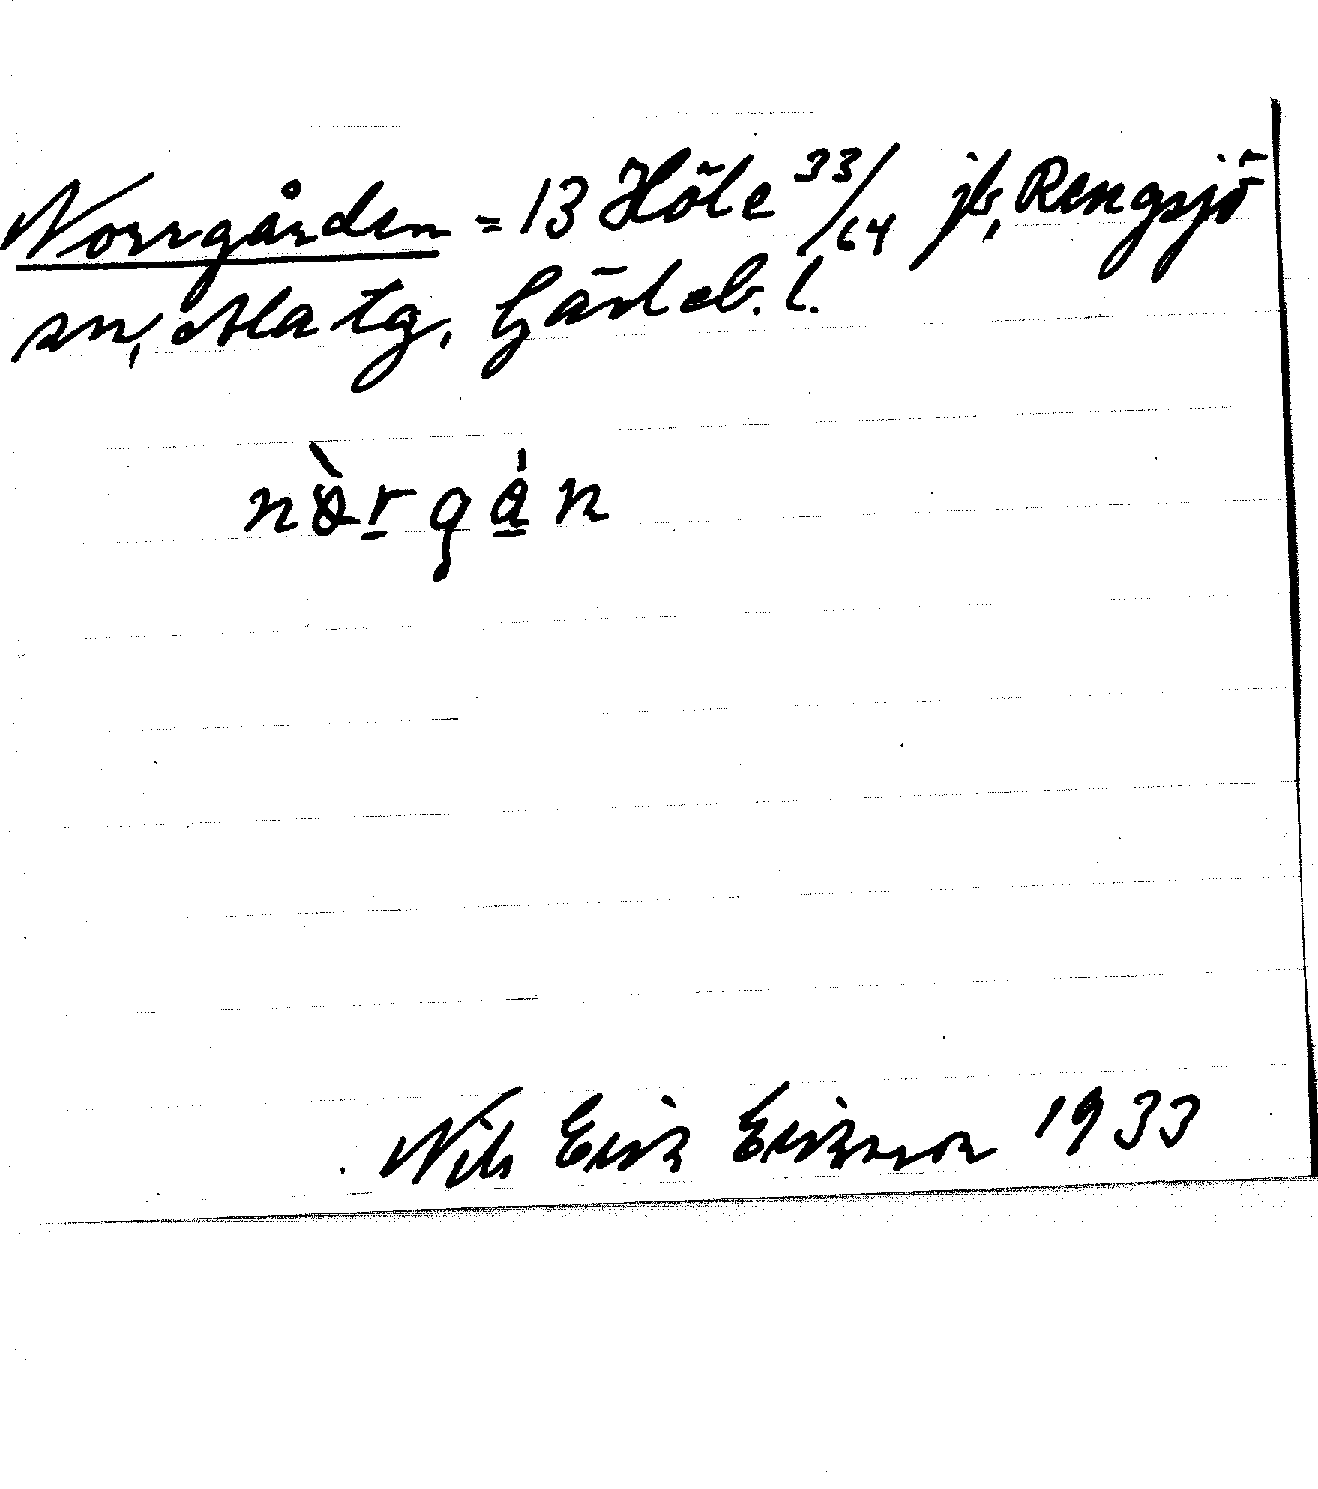 Norrgården = 13 Höle 33/64 jb, Rengsjö
sn, Ala tg, Gävleb. l.
nòrgán
Nils Erik Eriksson 1933